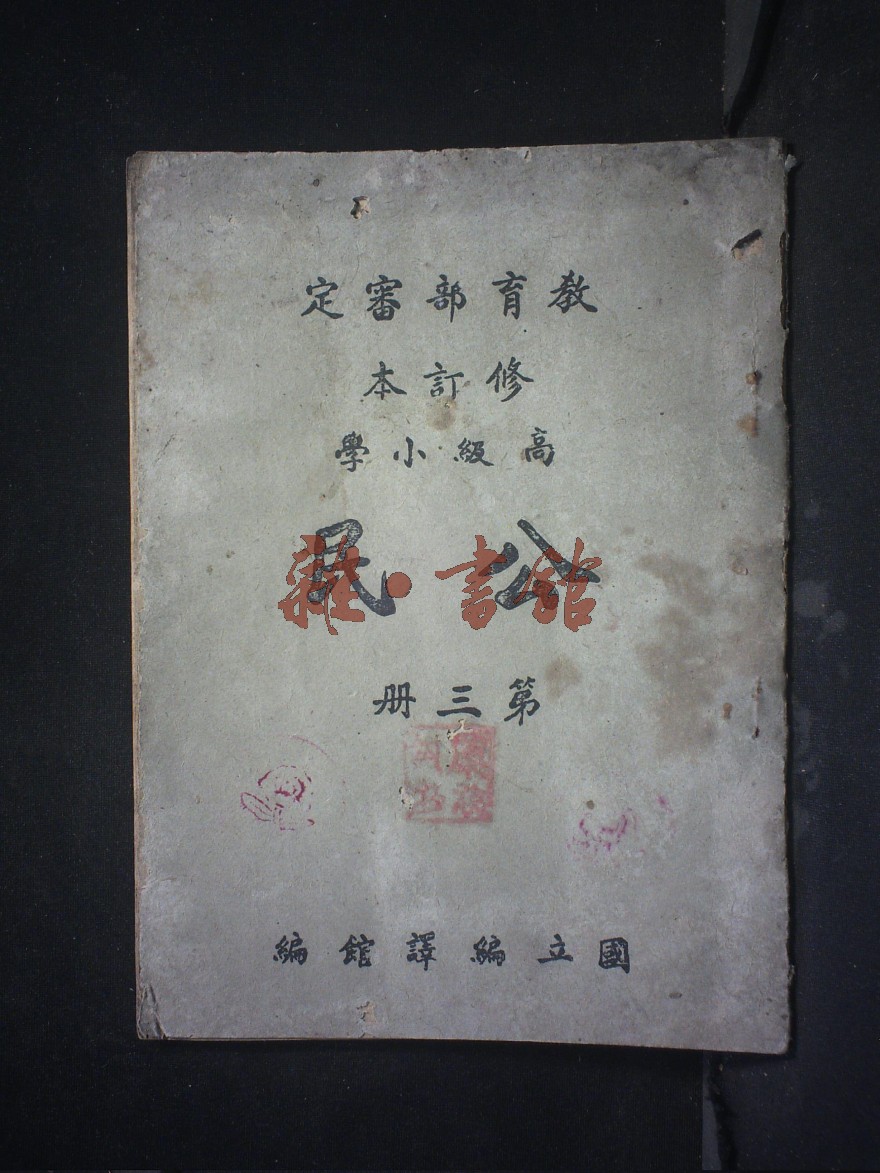 教育部審定
修訂本
高級小學
公民
雜·書館
第三册
國立編譯館編